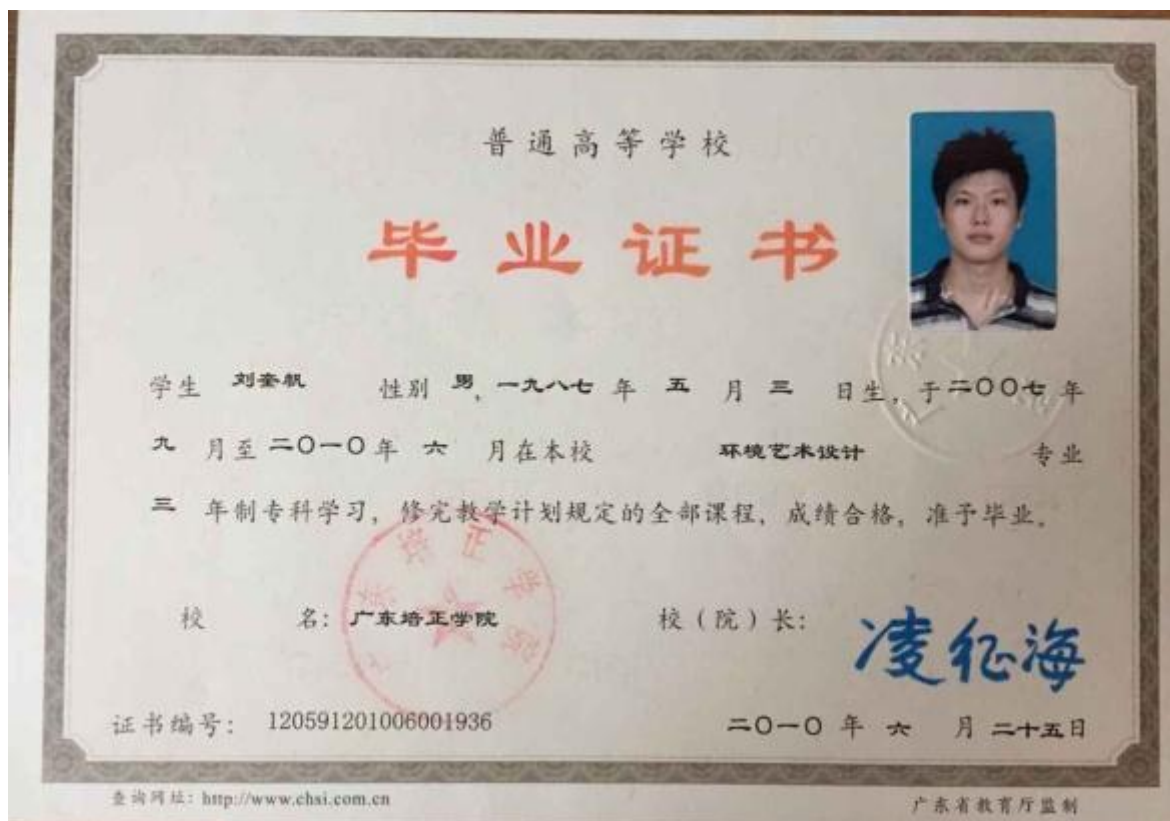 普通高等学校
毕业证书
学生 刘奎帆 性别 男，一九八七 年 五 月 三 日生，于二〇〇七 年
九 月至 二〇一〇 年 六 月在本校 环境艺术设计 专业
三 年制专科学习，修完教学计划规定的全部课程，成绩合格，准予毕业。
广东培正学院
校 名：广东培正学院 校（院）长：凌征海
证书编号：120591201006001936 二〇一〇 年 六 月 二十五日
查询网址：http://www.chsi.com.cn 广东省教育厅监制